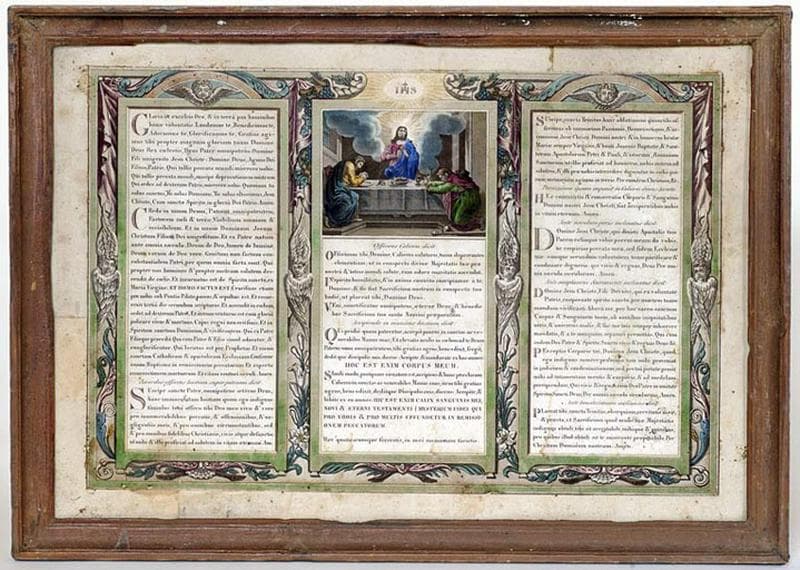 IHS
Gloria in excelsis Deo, & in terra pax hominibus
bonae voluntatis. Laudamus te, Benedicimus te,
Adoramus te, Glorificamus te, Gratias agi-
mus tibi propter magnam gloriam tuam Domine
Deus Rex caelestis, Deus Pater omnipotens. Domine
Fili unigenite Jesu Christe: Domine Deus, Agnus Dei
Filius Patris, Qui tollis peccata mundi miserere nobis.
Qui tollis peccata mundi, suscipe deprecationem nostram
Qui sedes ad dexteram Patris, miserere nobis. Quoniam tu
solus sanctus, Tu solus Dominus, Tu solus altissimus, Jesu
Christe, Cum sancto Spiritu, in gloria Dei Patris. Amen.
Credo in unum Deum, Patrem omnipotentem,
Factorem caeli & terrae Visibilium omnium &
invisibilium. Et in unum Dominum Jesum
Christum Filium Dei unigenitum. Et ex Patre natum
ante omnia saecula. Deum de Deo, lumen de lumine
Deum verum de Deo vero. Genitum non factum con-
substantialem Patri, per quem omnia facta sunt. Qui
propter nos homines & propter nostram salutem des-
cendit de caelis. Et incarnatus est de Spiritu sancto, ex
Maria Virgine: ET HOMO FACTUS EST. Crucifixus etiam
pro nobis sub Pontio Pilato passus, & sepultus est. Et resur-
rexit tertia die secundum scripturas. Et ascendit in caelum
sedet ad dexteram Patris. Et iterum venturus est cum gloria
judicare vivos & mortuos, Cujus regni non erit finis. Et in
Spiritum sanctum Dominum, & vivificantem. Qui ex Patre
Filioque procedit. Qui cum Patre & Filio simul adoratur, &
conglorificatur. Qui locutus est per Prophetas. Et unam
sanctam Catholicam & apostolicam Ecclesiam. Confiteor
unum Baptisma in remissionem peccatorum. Et expecto
resurrectionem mortuorum. Et vitam venturi saeculi. Amen.
Suscipe sancte Pater, omnipotens aeterne Deus,
hanc immaculatam hostiam quam ego indignus
famulus tuus offero tibi Deo meo vivo & vero
pro innumerabilibus peccatis, & offensionibus, & ne-
gligentiis meis, & pro omnibus circumstantibus, sed
& pro omnibus fidelibus Christianis, vivis atque defunctis:
ut mihi & illis proficiat ad salutem in vitam aeternam. Amen.
Offerens Calicem dicit
Offerimus tibi, Domine, Calicem salutaris, tuam deprecantes
clementiam, ut in conspectu divinae Majestatis tuae pro
nostra & totius mundi salute, cum odore suavitatis ascendat.
In Spiritu humilitatis, & in animo contrito suscipiamur a te
Domine, & sic fiat Sacrificium nostrum in conspectu tuo
hodie, ut placeat tibi, Domine Deus.
Veni, sanctificator omnipotens, aeterne Deus, & benedic
hoc Sacrificium tuo sancto Nomini praeparatum.
Qui pridie quam pateretur, accepit panem in sanctas ac ve-
nerabiles Manus suas, & elevatis oculis in caelum ad te Deum
Patrem suum omnipotentem, tibi gratias agens, bene dixit, fregit,
dedit que discipulis suis, dicens: Accipite & manducate ex hoc omnes
HOC EST ENIM CORPUS MEUM.
Simili modo, postquam coenatum est, accipiens & hunc praeclarum
Calicem in sanctas ac venerabiles Manus suas, item tibi gratias
agens, bene dixit, deditque Discipulis suis, dicens: Accipite, &
bibite ex eo omnes: HIC EST ENIM CALIX SANGUINIS MEI,
NOVI & AETERNI TESTAMENTI (MYSTERIUM FIDEI) QUI
PRO VOBIS & PRO MULTIS EFFUNDETUR IN REMISSI-
ONEM PECCATORUM.
Haec quotiescumque feceritis, in mei memoriam facietis.
Suscipe, sancta Trinitas, hanc oblationem quam tibi of-
ferimus ob memoriam Passionis, Resurrectionis, & As-
censionis Jesu Christi Domini nostri, & in honorem beatae
Mariae semper Virginis, & beati Joannis Baptistae, & San-
ctorum Apostolorum Petri & Pauli, & istorum, & omnium
Sanctorum, ut illis proficiat ad honorem, nobis autem ad
salutem, & illi pro nobis intercedere dignentur in caelis quo-
rum memoriam agimus in terris. Per eumdem Christum, &c.
Haec commixtio & consecratio Corporis & Sanguinis
Domini nostri Jesu Christi, fiat accipientibus nobis
in vitam aeternam. Amen.
Domine Jesu Christe, qui dixisti Apostolis tuis
Pacem relinquo vobis pacem meam do vobis,
ne respicias peccata mea, sed fidem Ecclesiae
tuae: eamque secundum voluntatem tuam pacificare &
coadunare digneris: qui vivis & regnas, Deus Per om-
nia saecula saeculorum. Amen.
Domine Jesu Christe, Fili Dei vivi, qui ex voluntate
Patris, cooperante spiritu sancto, per mortem tuam
mundum vivificasti: libera me per hoc sacro-sanctum
Corpus & Sanguinem tuum, ab omnibus iniquitatibus
meis, & universis malis, & fac me tuis semper inhaerere
mandatis, & a te numquam separari permittas. Qui cum
eodem Deo Patre & Spiritu Sancto vivis & regnas Deus &c.
Perceptio Corporis tui, Domine Jesu Christe, quod
ego indignus sumere praesumo, non mihi proveniat
in judicium & condemnationem, sed pro tua pietate prosit
mihi ad tutamentum mentis & corporis, & ad medelam
percipiendam, Qui vivis & regnas cum Deo Patre in unitate
Spiritus Sancti Deus, Per omnia saecula saeculorum. Amen.
Placeat tibi sancta Trinitas, obsequium servitutis meae,
& praesta, ut Sacrificium quod oculis tuae Majestatis
indignus obtuli, tibi sit acceptabile, mihique & omnibus
pro quibus illud obtuli sit te miserante propitiabile. Per
Christum Dominum nostrum. Amen.